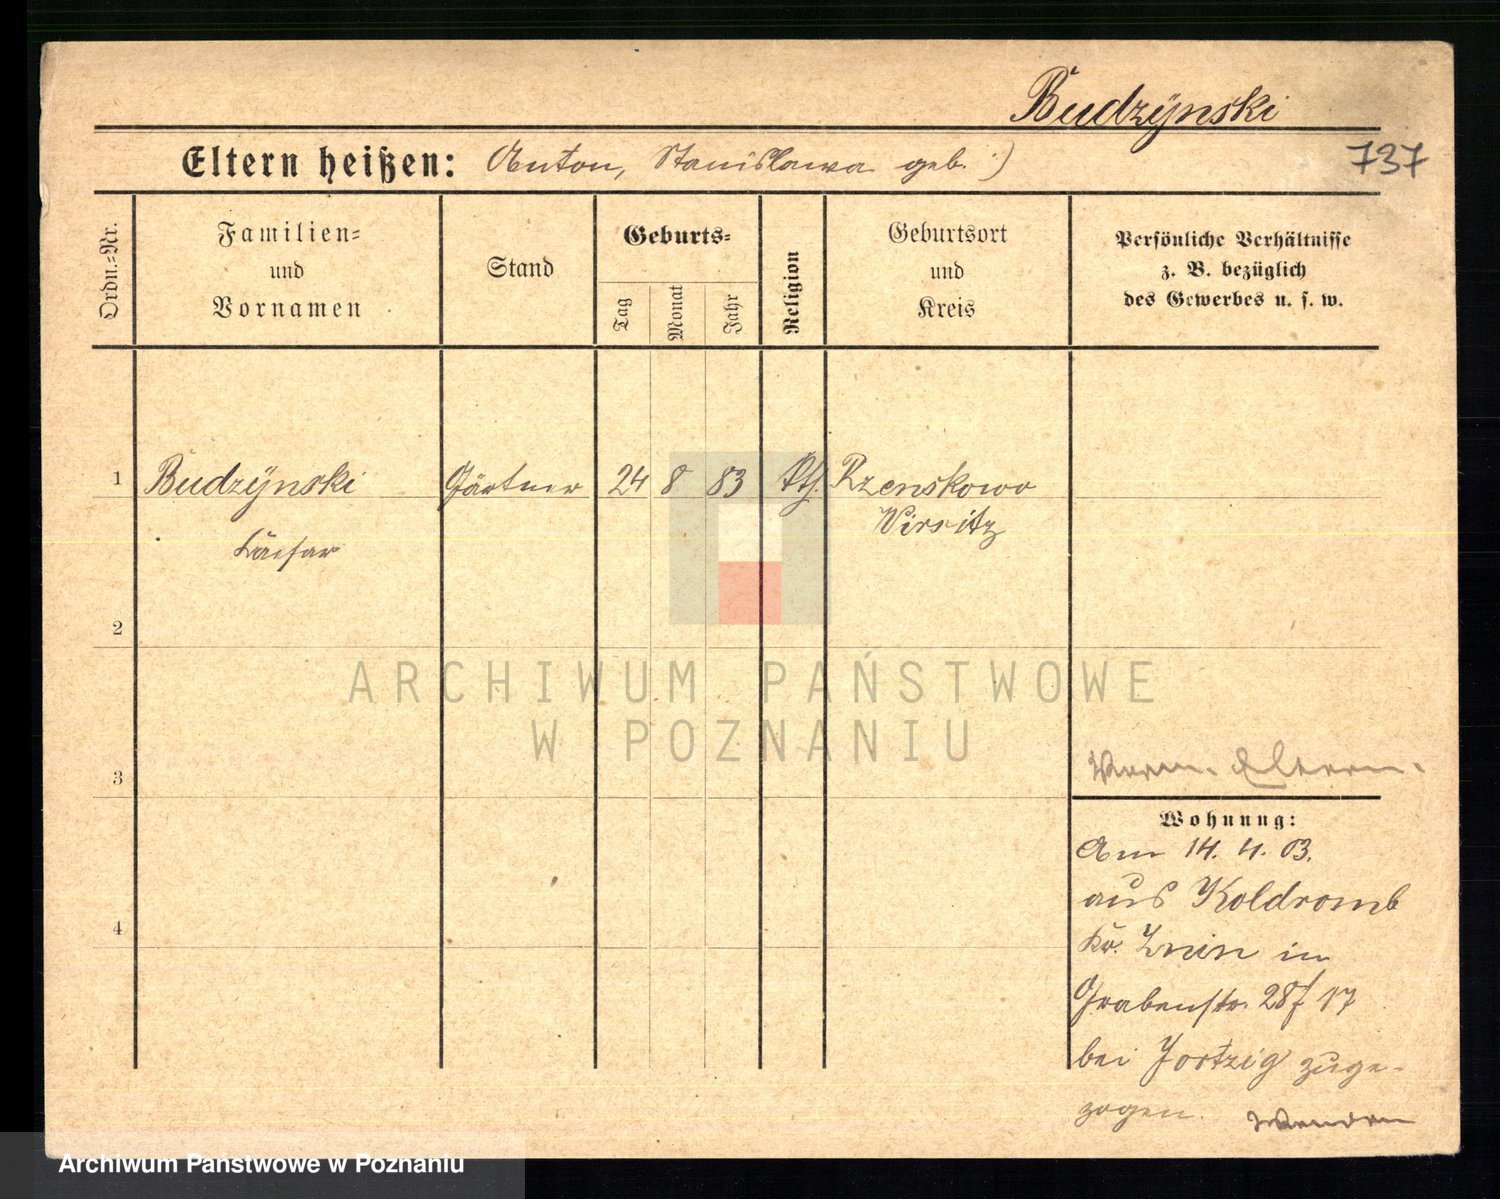 Budzÿnski
Eltern heißen: Anton, Stanislawa geb. :)
737
Ordn.-Nr.
Familien-
und
Vornamen
Stand
Geburts-
Tag
Monat
Jahr
Religion
Geburtsort
und
Kreis
Persönliche Verhältnisse
z. B. bezüglich
des Gewerbes u. s. w.
1 Budzÿnski Gärtner 24 8 83 kth. Rzenskowo
Wirsitz
Cäesar
2
ARCHIWUM PAŃSTWOWE
W POZNANIU
3
Eltern.
Wohnung:
Am 14. 4. 03.
aus Koldromb
4
Kr. Znin in
Grabenstr. 28 f 17
bei zuge-
zogen. Wenden
Archiwum Państwowe w Poznaniu